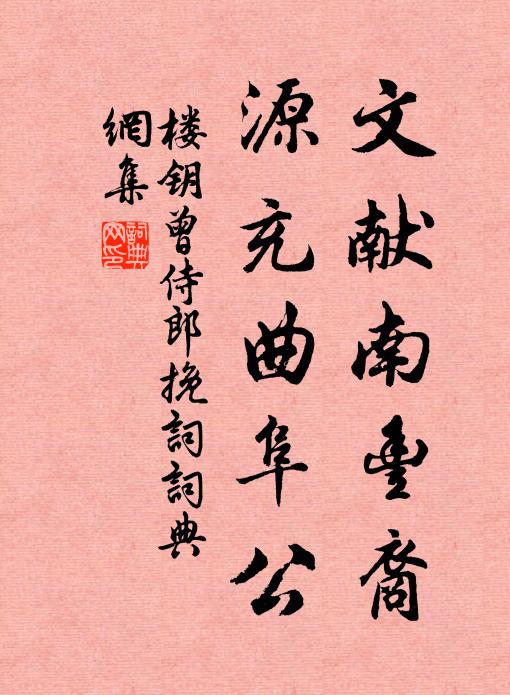 文献南豊裔
源充曲阜公
楼钥曾侍郎挽词词典
網集
詞典网印